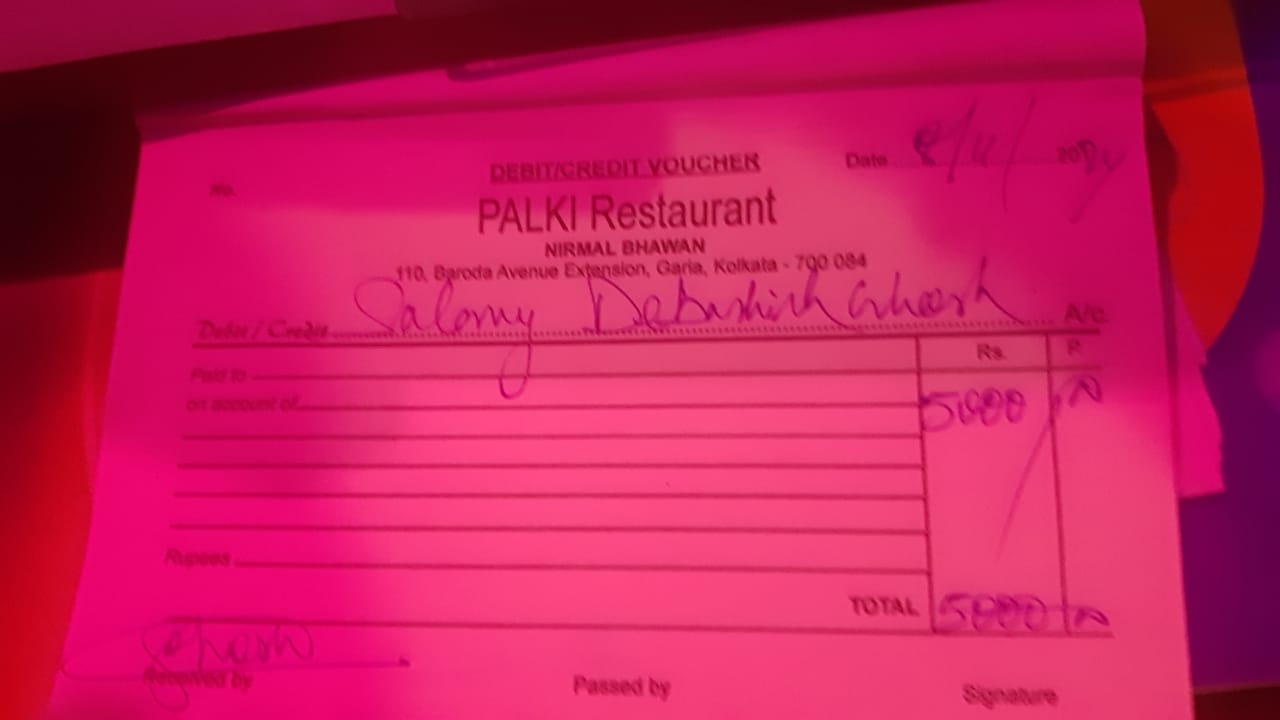 DEBIT/CREDIT VOUCHER
No.
Date 8/11/2024
PALKI Restaurant
NIRMAL BHAWAN
110, Baroda Avenue Extension, Garia, Kolkata - 700 084
Debit / Credit Salomy Debashish Ghosh A/c.
Rs. P.
Paid to
on account of 5000
Rupees
TOTAL 5000
Ghosh
Received by Passed by Signature